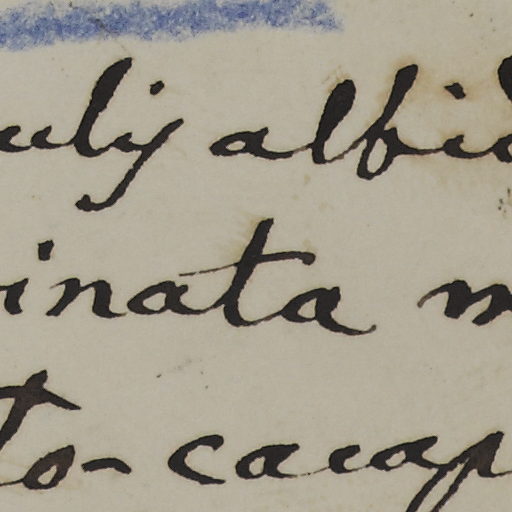 uly albid
inata m
to-cacap